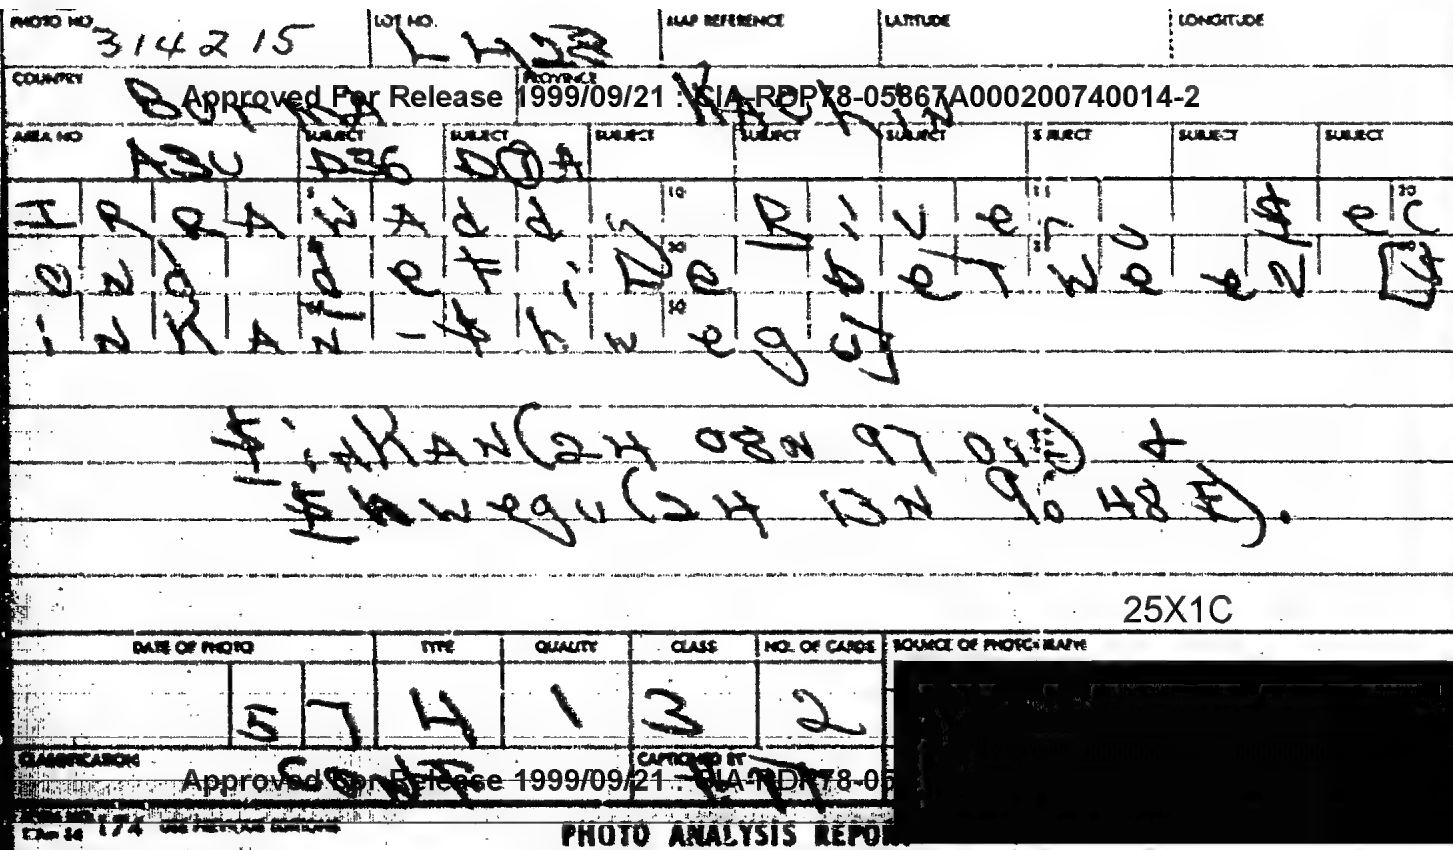 PHOTO NO. LOT NO. MAP REFERENCE LATITUDE LONGITUDE
314215
COUNTRY PROVINCE
Burma KAchin
Approved For Release 1999/09/21 : CIA-RDP78-05867A000200740014-2
AREA NO SUBJECT SUBJECT SUBJECT SUBJECT SUBJECT SUBJECT SUBJECT SUBJECT
5 10 15 20
IRRAWAddy River, Sec
ond defile between S
inKAN-Shwegu
SinKAN (24 08N 97 01E) &
Shwegu (24 13N 96 48E).
25X1C
DATE OF PHOTO TYPE QUALITY CLASS NO. OF CARDS SOURCE OF PHOTOGRAPH
57 4 1 3 2
CLASSIFICATION CAPTIONED BY
Approved For Release 1999/09/21 : CIA-RDP78-05
174 USE PREVIOUS EDITIONS
PHOTO ANALYSIS REPOR